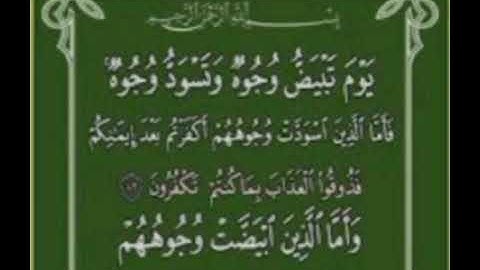 بِسْمِ ٱللَّهِ ٱلرَّحْمَٰنِ ٱلرَّحِيمِ
يَوْمَ تَبْيَضُّ وُجُوهٌ وَتَسْوَدُّ وُجُوهٌ ۚ
فَأَمَّا ٱلَّذِينَ ٱسْوَدَّتْ وُجُوهُهُمْ أَكَفَرْتُم بَعْدَ إِيمَٰنِكُمْ
فَذُوقُوا۟ ٱلْعَذَابَ بِمَا كُنتُمْ تَكْفُرُونَ ١٠٦
وَأَمَّا ٱلَّذِينَ ٱبْيَضَّتْ وُجُوهُهُمْ